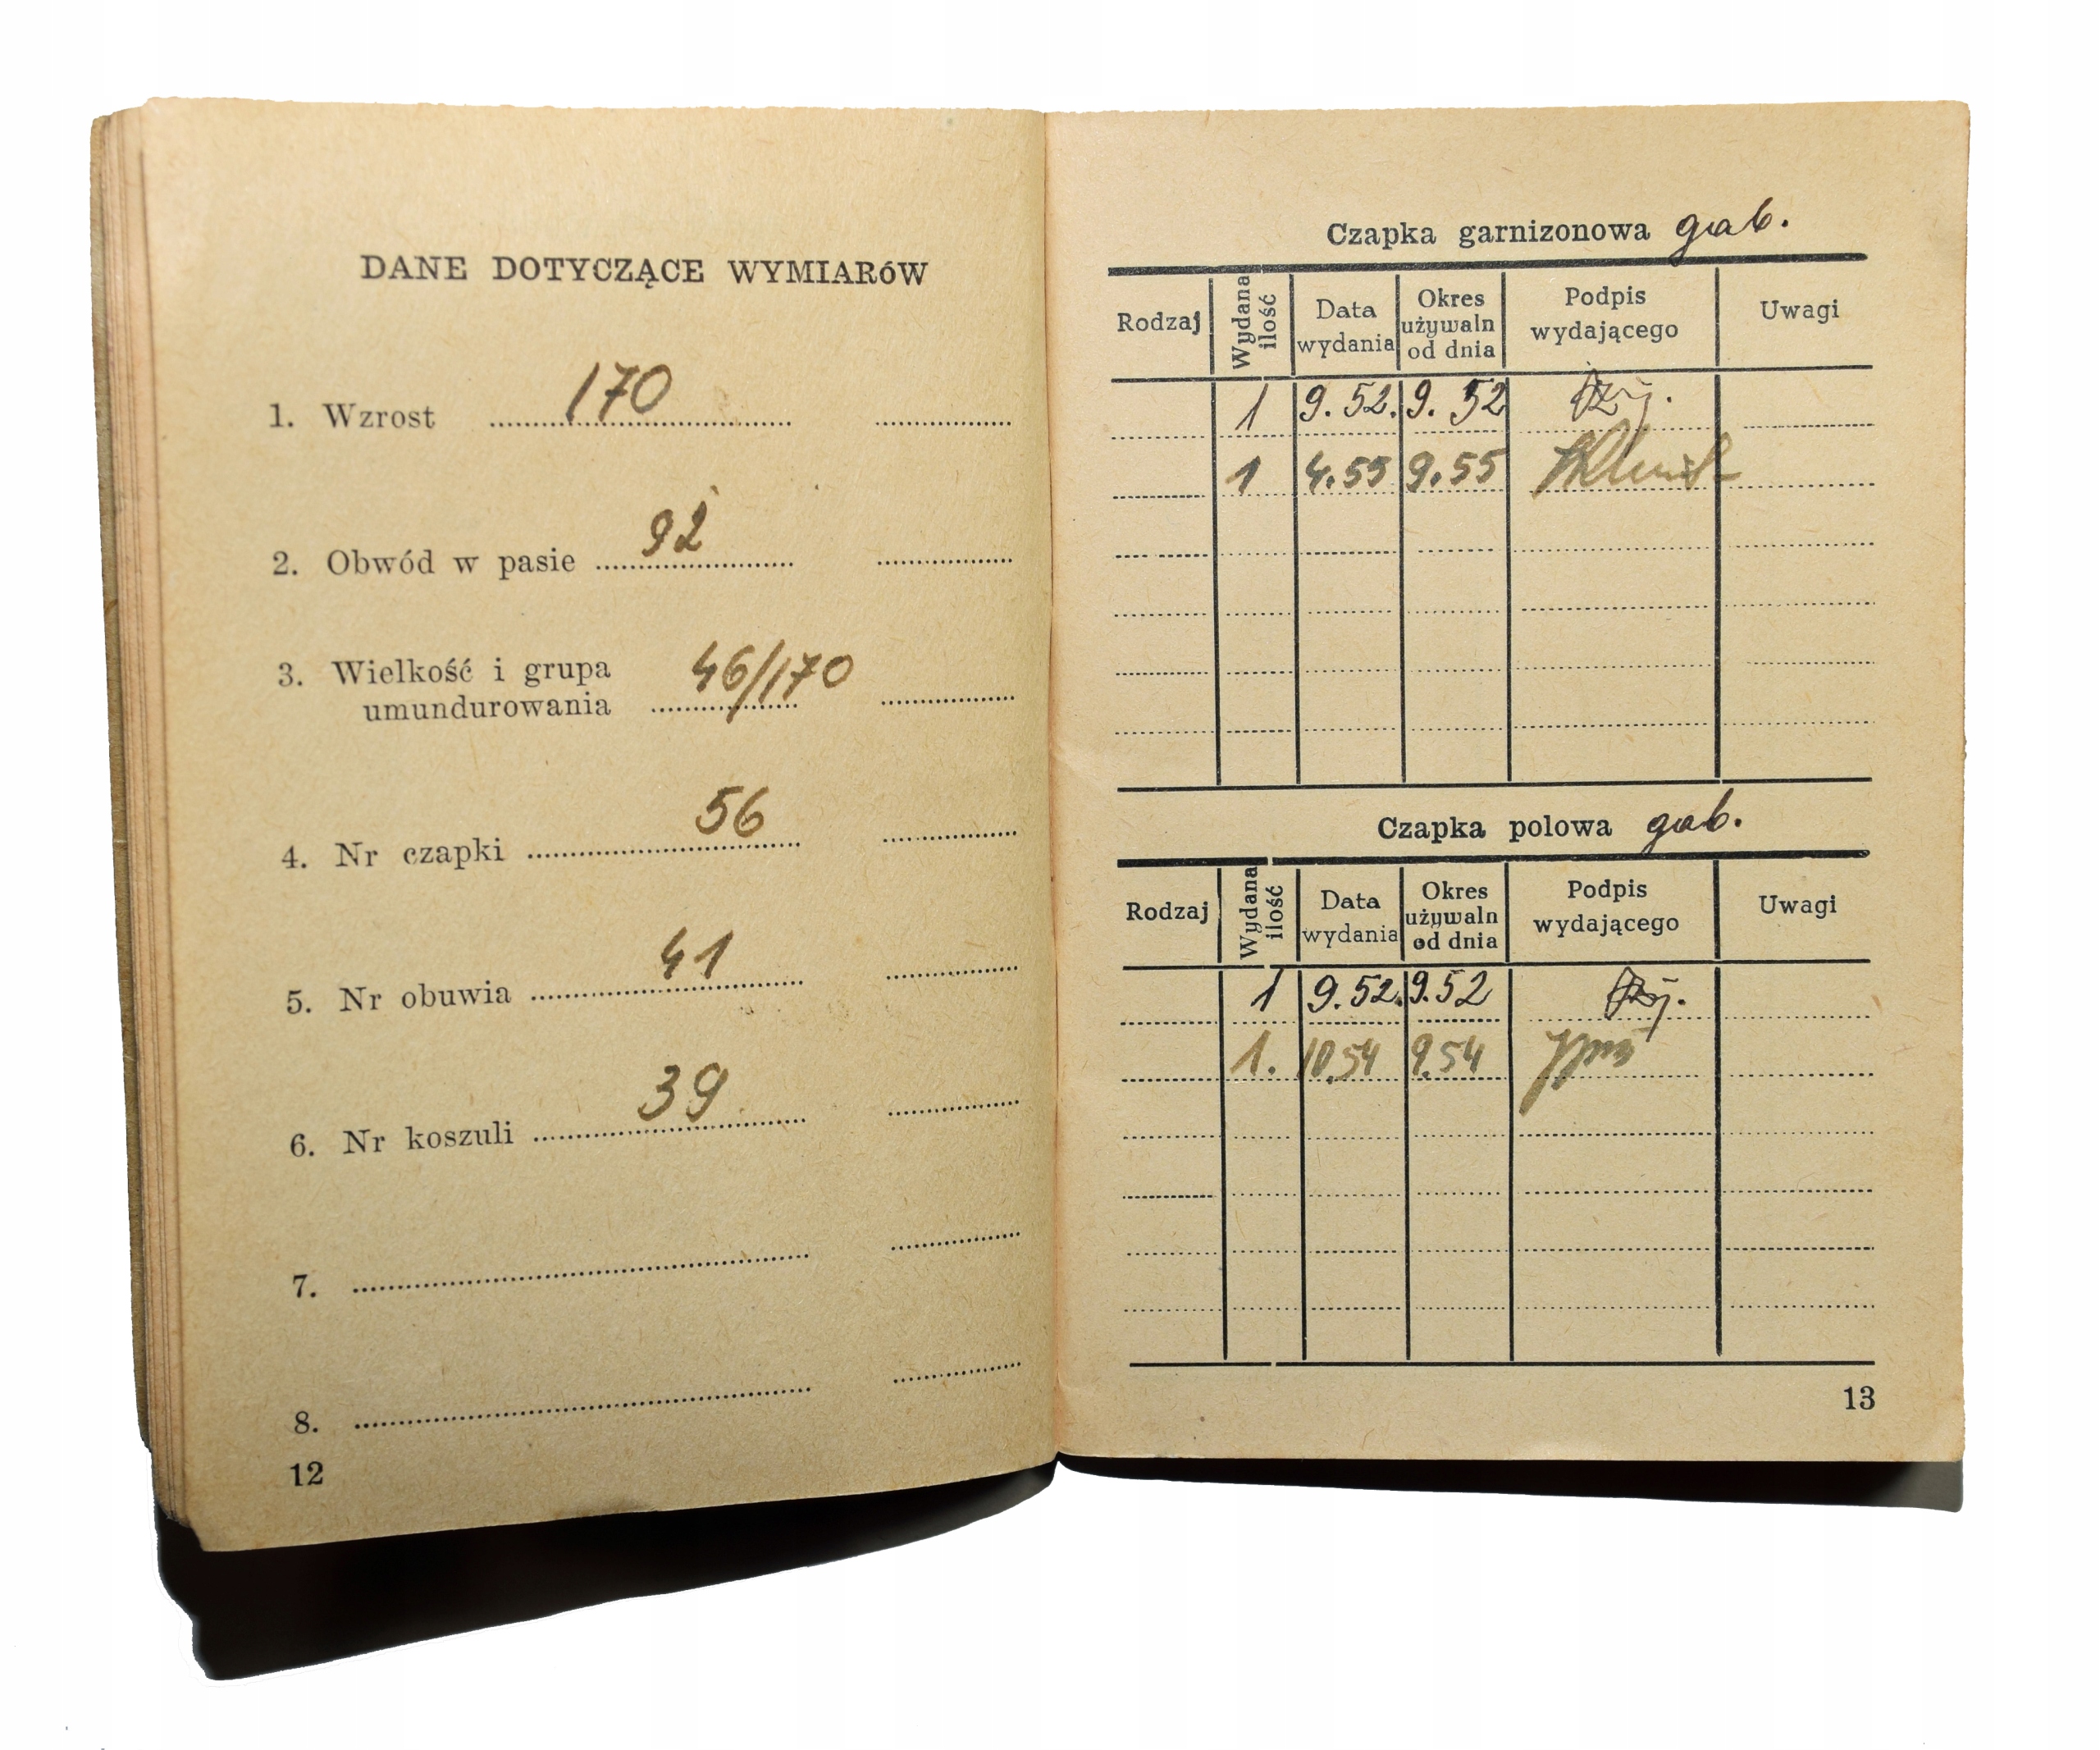 DANE DOTYCZĄCE WYMIARÓW
1. Wzrost 170
2. Obwód w pasie 92
3. Wielkość i grupa
umundurowania 46/170
4. Nr czapki 56
5. Nr obuwia 41
6. Nr koszuli 39
7.
8.
12
Czapka garnizonowa gab.
Rodzaj Wydana ilość Data wydania Okres używaln od dnia Podpis wydającego Uwagi
1 9.52. 9.52
1 4.55 9.55
Czapka polowa gab.
Rodzaj Wydana ilość Data wydania Okres używaln od dnia Podpis wydającego Uwagi
1 9.52. 9.52
1. 10.54 9.54
13